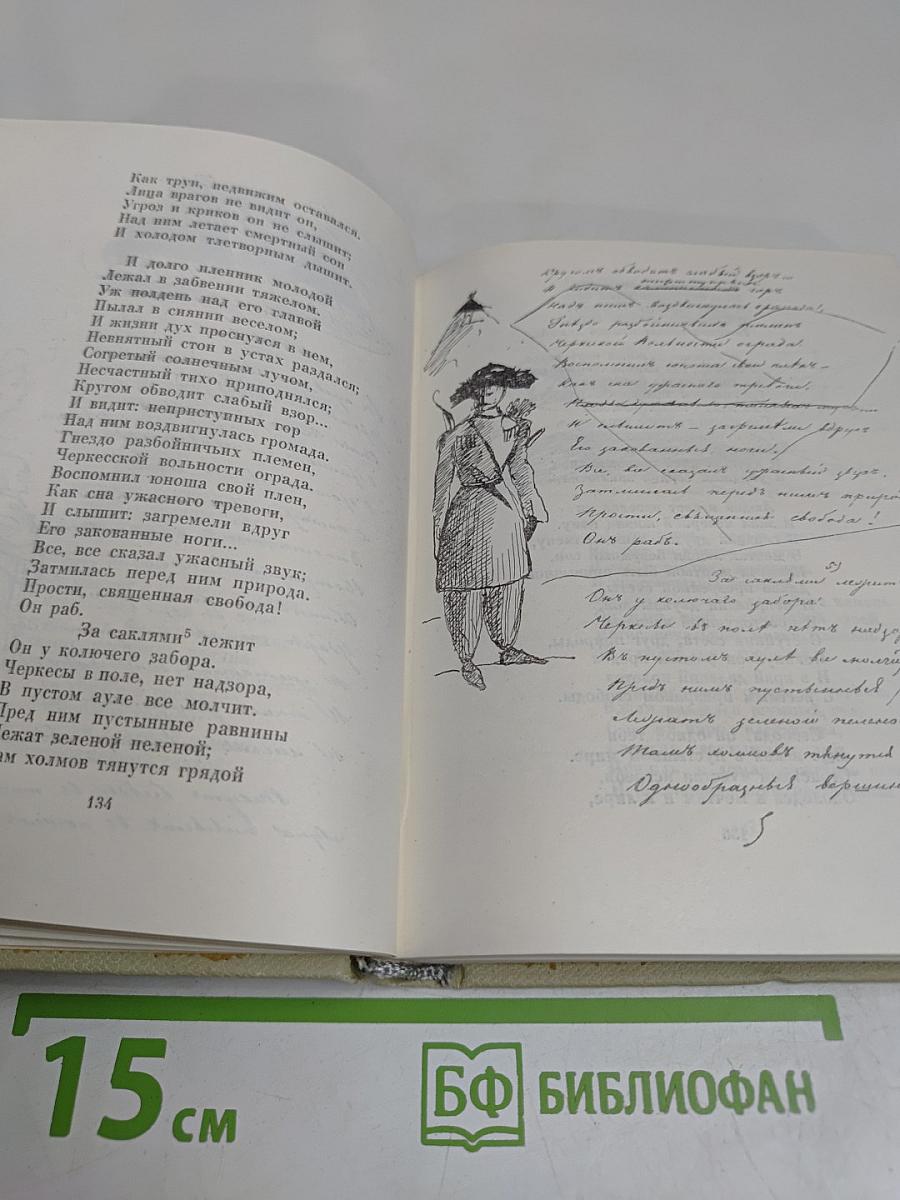 Как труп, недвижим оставался.
Лица врагов не видит он,
Угроз и криков он не слышит;
Над ним летает смертный сон
И холодом тлетворным дышит.
И долго пленник молодой
Лежал в забвении тяжелом.
Уж полдень над его главой
Пылал в сиянии веселом;
И жизни дух проснулся в нем,
Невнятный стон в устах раздался;
Согретый солнечным лучом,
Несчастный тихо приподнялся;
Кругом обводит слабый взор...
И видит: неприступных гор
Над ним воздвигнулась громада.
Гнездо разбойничьих племен,
Черкесской вольности ограда.
Воспомнил юноша свой плен,
Как сна ужасного тревоги,
И слышит: загремели вдруг
Его закованные ноги...
Все, все сказал ужасный звук;
Затмилась перед ним природа.
Прости, священная свобода!
Он раб.
За саклями5 лежит
Он у колючего забора.
Черкесы в поле, нет надзора,
В пустом ауле все молчит.
Пред ним пустынные равнины
Лежат зеленой пеленой;
ам холмов тянутся грядой
134
Кругомъ обводитъ слабый взоръ
И видитъ горъ
Надъ нимъ воздвигнулась громада,
Гнездо разбойничьихъ племенъ
Черкеской вольности ограда.
Воспомнилъ юноша свой плѣнъ —
Какъ сна ужаснаго тревоги,
И слышитъ — загремѣли вдругъ
Его закованныя ноги.
Все, все сказалъ ужасный звукъ.
Затмилась передъ нимъ приро
Прости, священная свобода!
Онъ рабъ.
За саклями 5) лежит
Онъ у колючаго забора.
Черкесы въ полѣ нѣтъ надзо
Въ пустомъ аулѣ все молчи
Предъ нимъ пустынныя
Лежатъ зеленой пелено
Тамъ холмовъ тянутся
Однообразныя вершин
15 см
БФ БИБЛИОФАН